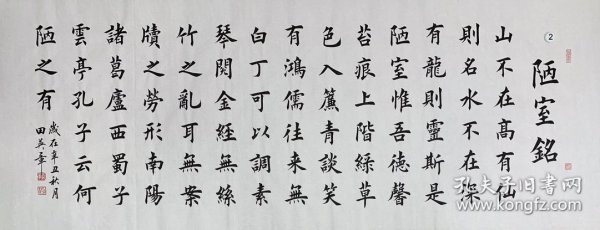 ②
陋室銘
山不在高有仙
則名水不在深
有龍則靈斯是
陋室惟吾德馨
苔痕上階綠草
色入簾青談笑
有鴻儒往來無
白丁可以調素
琴閱金經無絲
竹之亂耳無案
牘之勞形南陽
諸葛廬西蜀子
雲亭孔子云何
陋之有
歲在辛丑秋月
田英章
孔夫子旧书网
www.kongfz.com